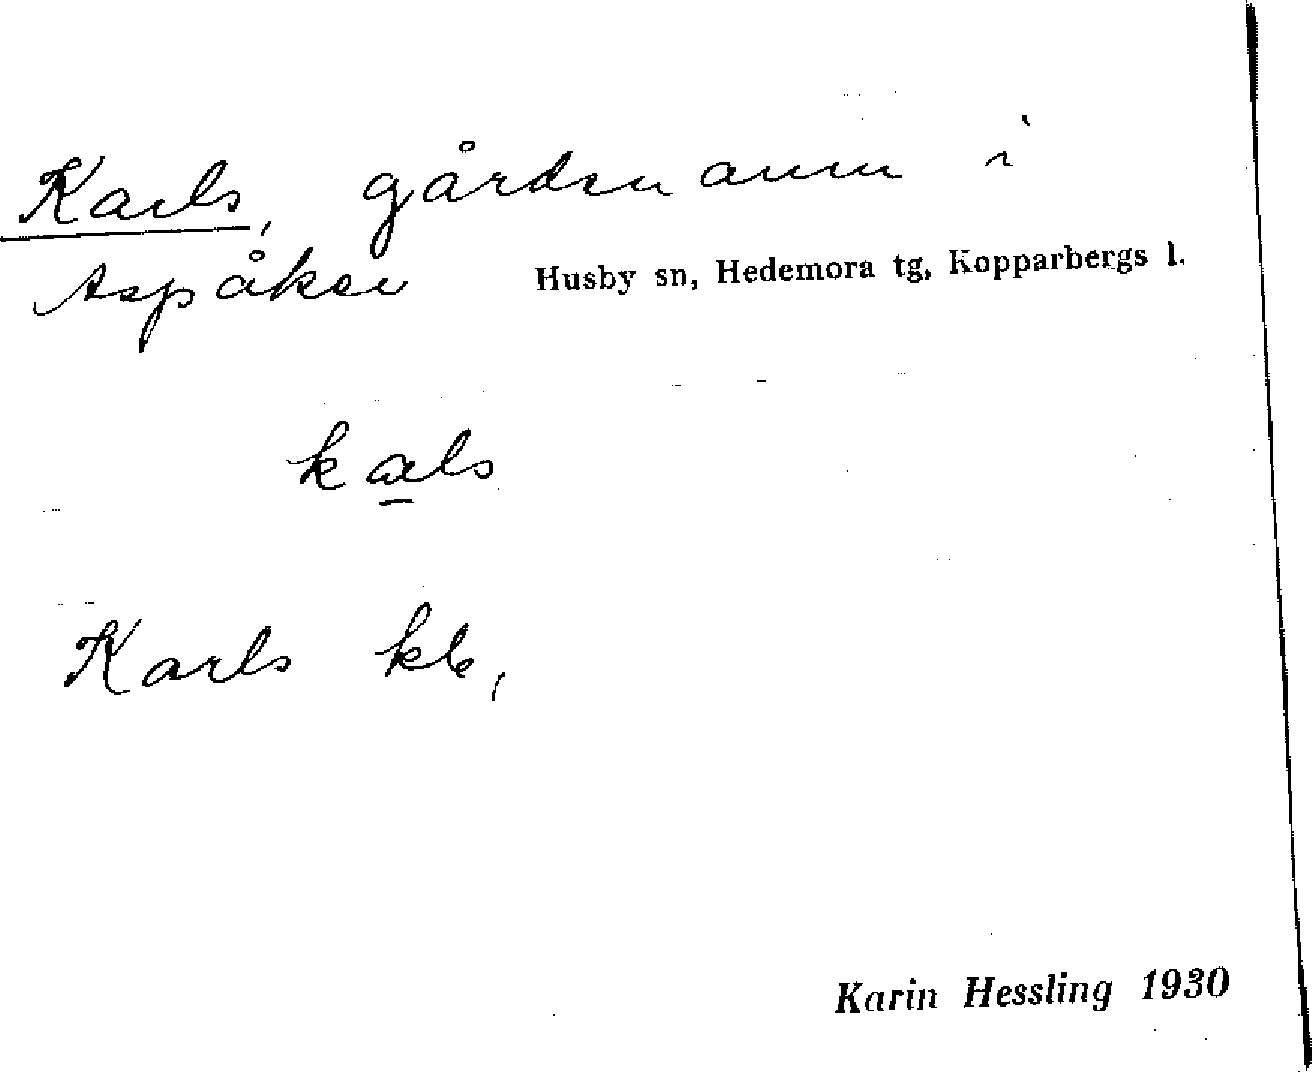 Karls, gårdsnamn i
Aspåker Husby sn, Hedemora tg, Kopparbergs l.
kals
Karls kb,
Karin Hessling 1930